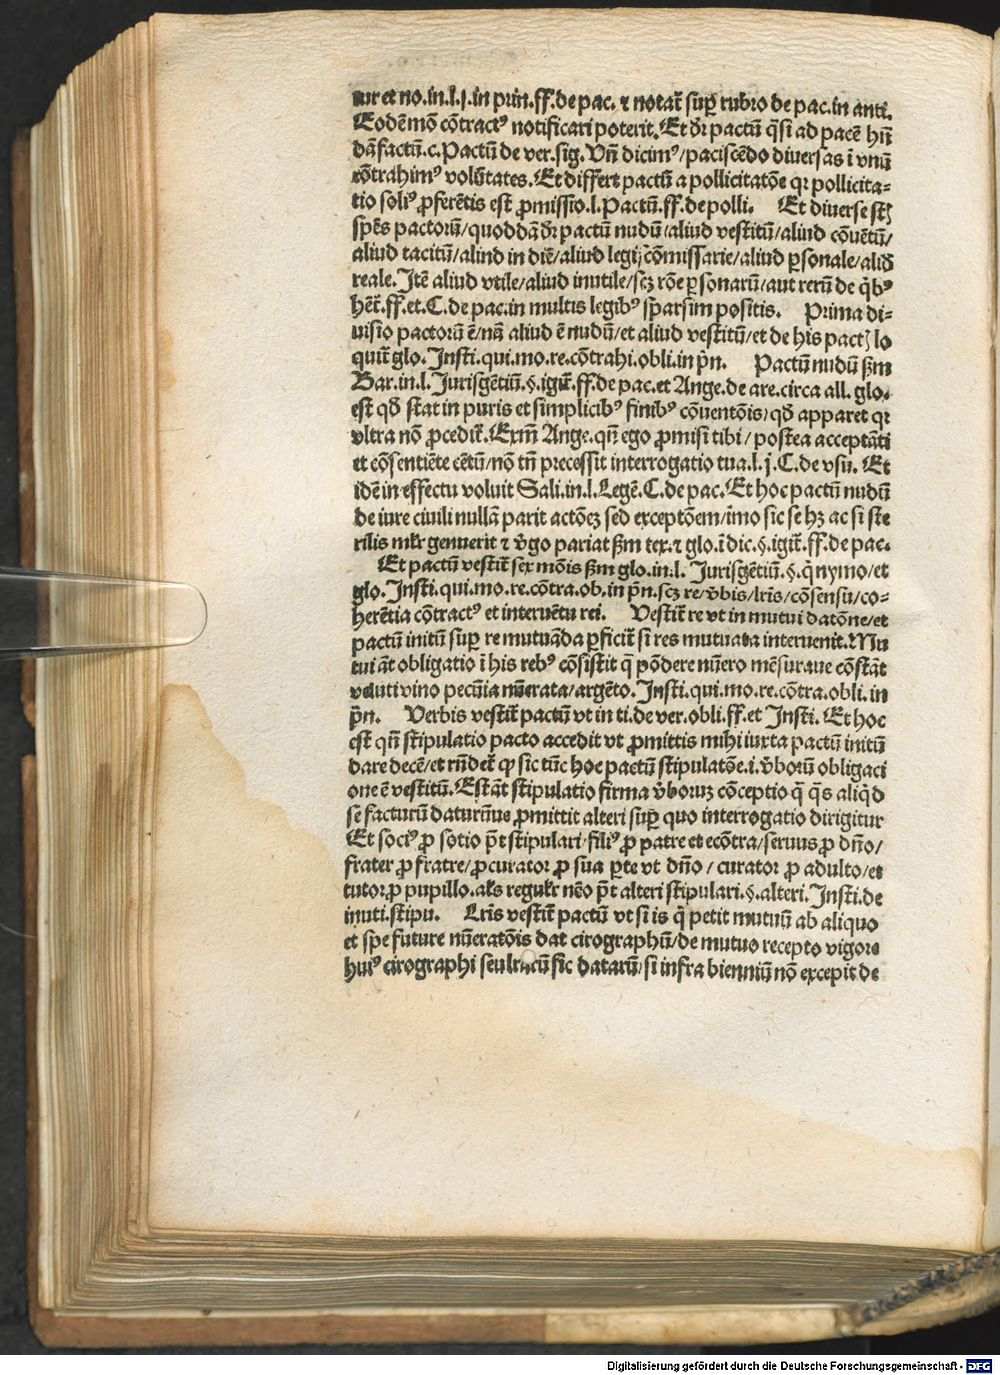 tur et no.in.l.j.in prin.ff.de pac. ⁊ notat̃ suꝑ rubro de pac.in anti.
Eodẽ mõ cõtractꝰ notificari poterit. Et dr̃ pactũ q̃si ad pacẽ hñ
dã factũ.c. Pactũ de ver.sig. Uñ dicimꝰ/paciscẽdo diuersas ĩ vnũ
cõtrahimꝰ volũtates. Et differt pactũ a pollicitatõe qꝛ pollicita⸗
tio soliꝰ ꝓferẽtis est ꝓmissio.l. Pactũ.ff.de polli. Et diuerse st̃
sp̃es pactorũ/quoddã dr̃ pactũ nudũ/aliud vestitũ/aliud cõuẽtũ/
aliud tacitũ/aliud in diẽ/aliud legis cõmissarie/aliud ꝑsonale/aliđ
reale. Itẽ aliud vtile/aliud inutile/scꝫ rõe ꝑsonarũ/aut rerũ de q̃bꝰ
hẽt̃.ff.et.C.de pac.in multis legibꝰ sparsim positis. Prima di⸗
uisio pactorũ ẽ/nã aliud ẽ nudũ/et aliud vestitũ/et de his pactꝭ lo
quit̃ glo. Insti.qui.mo.re.cõtrahi.obli.in pñ. Pactũ nudũ ßm
Bar.in.l. Jurisgẽtiũ.§.igit̃.ff.de pac.et Ange.de are.circa all. glo.
est qđ stat in puris et simplicibꝰ finibꝰ cõuentõis/qđ apparet qꝛ
vltra nõ ꝓcedit̃. Exm̃ Ange.qñ ego ꝓmisi tibi/postea acceptãti
et cõsentiẽte cẽtũ/nõ tñ precessit interrogatio tua.l.j.C.de vsu. Et
idẽ in effectu voluit Sali.in.l. Legẽ.C.de pac. Et hoc pactũ nudũ
de iure ciuili nullã parit actõeꝫ sed exceptõem/imo sic se hꝫ ac si ste
rilis mlr̃ genuerit ⁊ v̓go pariat ßm tex.⁊ glo.ĩ dic.§.igit̃.ff.de pac.
Et pactũ vestit̃ sex mõis ßm glo.in.l. Jurisgẽtiũ.§.q̃nymo/et
glo. Insti.qui.mo.re.cõtra.ob.in pñ.scꝫ re/v̓bis/lr̃is/cõsensu/co⸗
herẽtia cõtractꝰ et interuẽtu rei. Vestit̃ re vt in mutui datõne/et
pactũ initũ suꝑ re mutuãda ꝑficit̃ si res mutuata interuenit. Mu
tui ãt obligatio ĩ his rebꝰ cõsistit q̃ põdere nũero mẽsuraue cõstãt
veluti vino pecũia nũerata/argẽto. Insti.qui.mo.re.cõtra.obli.in
pñ. Verbis vestit̃ pactũ vt in ti.de ver.obli.ff.et Insti. Et hoc
est qñ stipulatio pacto accedit vt ꝓmittis mihi iuxta pactũ initũ
dare decẽ/et rñdet̃ ꝙ sic tũc hoc pactũ stipulatõe.i.v̓borũ obligaci
one ẽ vestitũ. Est ãt stipulatio firma v̓boruꝫ cõceptio q̃ q̃s aliq̃d
se facturũ daturũue ꝓmittit alteri suꝑ quo interrogatio dirigitur
Et sociꝰ ꝓ sotio põt stipulari.filiꝰ ꝓ patre et ecõtra/seruus ꝓ dño/
frater ꝓ fratre/ꝓcurator ꝓ sua ꝑte vt dño/curator ꝓ adulto/et
tutor ꝓ pupillo.als regulr̃ nẽo põt alteri stipulari.§.alteri. Insti.de
inuti.stipu. Lr̃is vestit̃ pactũ vt si is q̃ petit mutuũ ab aliquo
et spe future nũeratõis dat cirographũ/de mutuo recepto vigore
huiꝰ cirographi seu sic datarũ/si infra bienniũ nõ excepit de
Digitalisierung gefördert durch die Deutsche Forschungsgemeinschaft - DFG